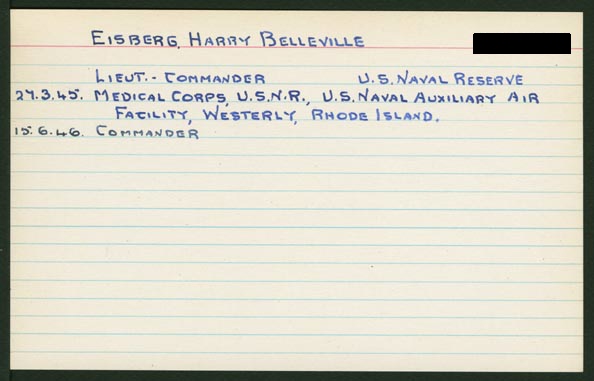 EISBERG, HARRY BELLEVILLE
LIEUT.-COMMANDER U.S. NAVAL RESERVE
27.3.45. MEDICAL CORPS, U.S.N.R., U.S. NAVAL AUXILIARY AIR
FACILITY, WESTERLY, RHODE ISLAND.
15.6.46. COMMANDER